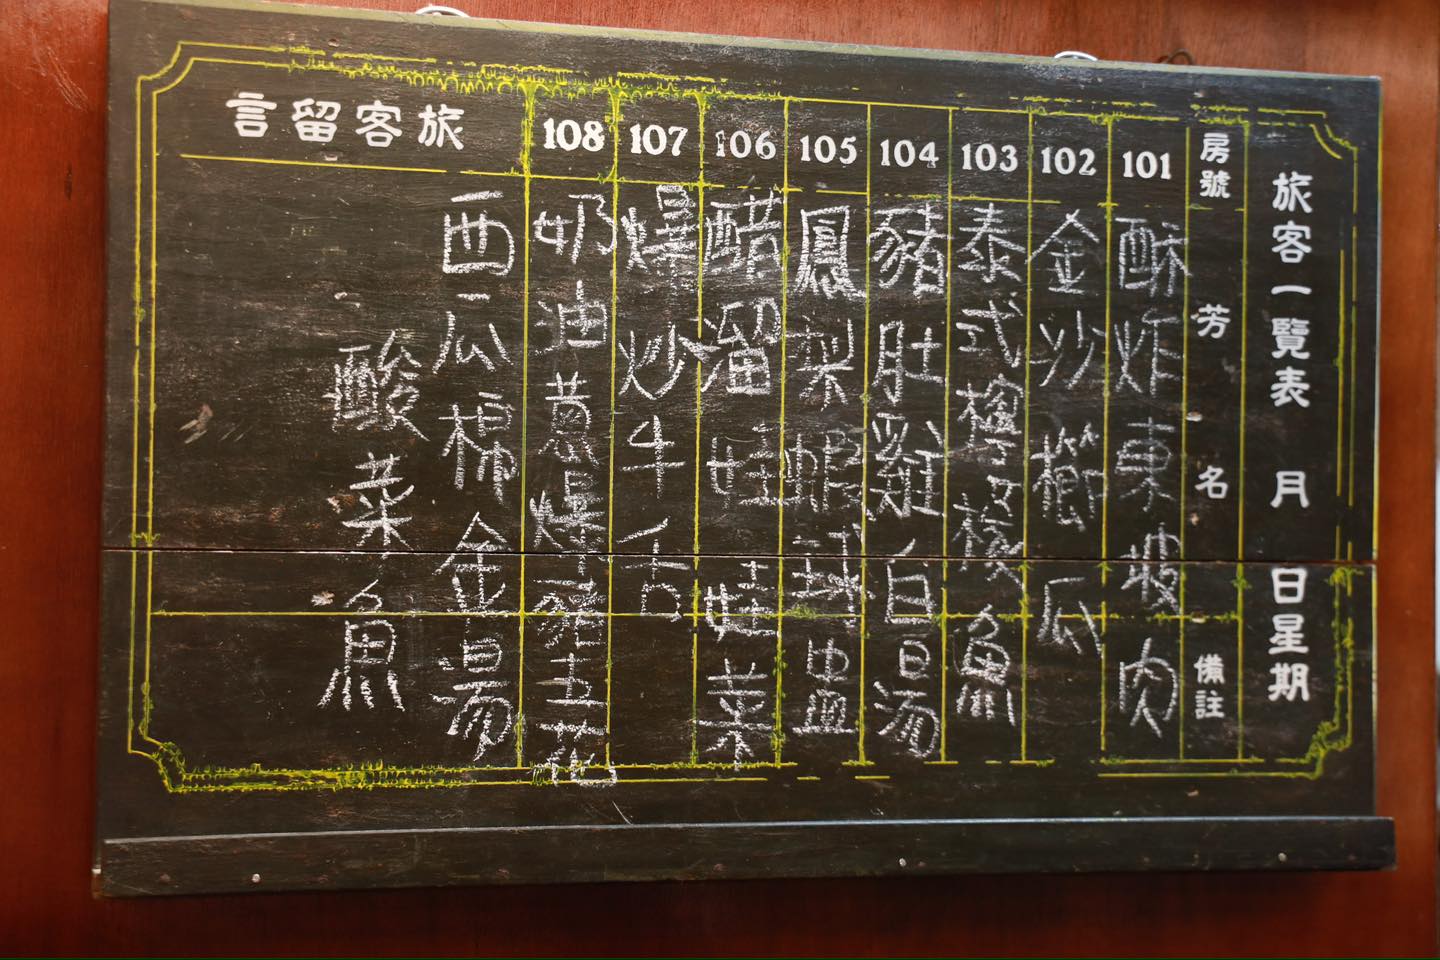 旅客一覽表 月 日 星期
房號 芳名 備註
101 酥炸東坡肉
102 金沙櫛瓜
103 泰式檸檬魚
104 豬肚雞白湯
105 鳳梨蝦球盅
106 醋溜娃娃菜
107 爆炒牛舌
108 奶油蔥爆豬五花
旅客留言
西瓜棉金湯
酸菜魚